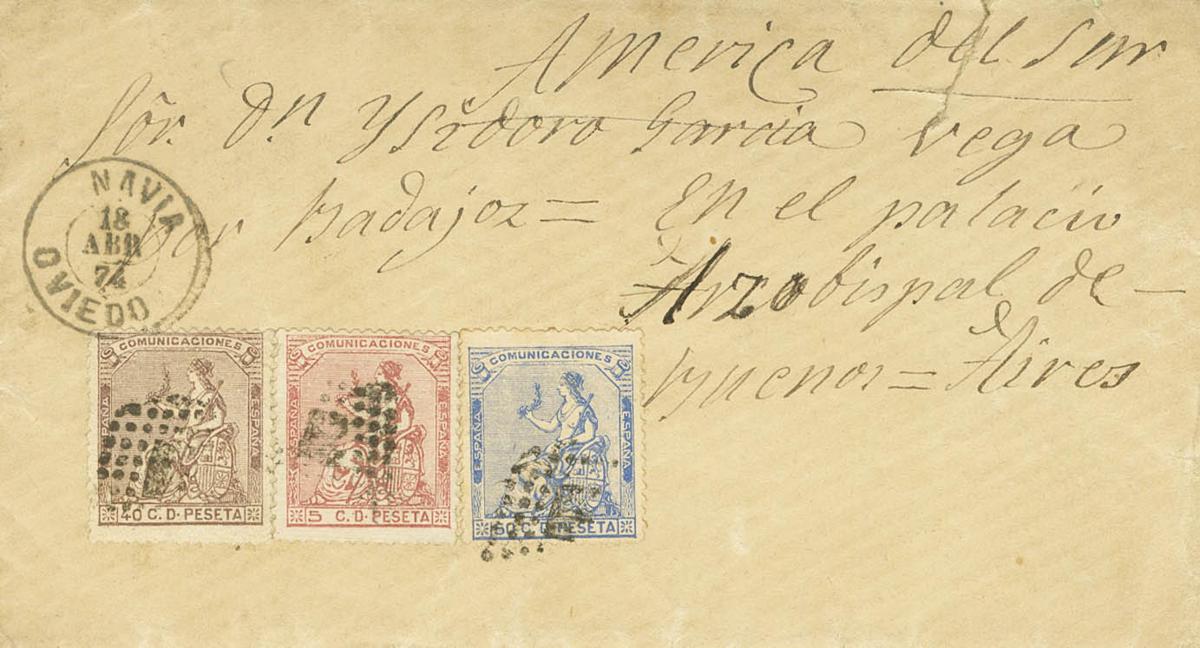 America del Sur
Sôr. Dn Ysidoro Garcia Vega
por Badajoz = En el palacio
Arzobispal de —
Buenos = Aires
NAVIA
18
ABR
74
OVIEDO
COMUNICACIONES
ESPAÑA
ESPAÑA
40 C. D. PESETA
COMUNICACIONES
ESPAÑA
ESPAÑA
5 C. D. PESETA
COMUNICACIONES
ESPAÑA
ESPAÑA
50 C. D. PESETA